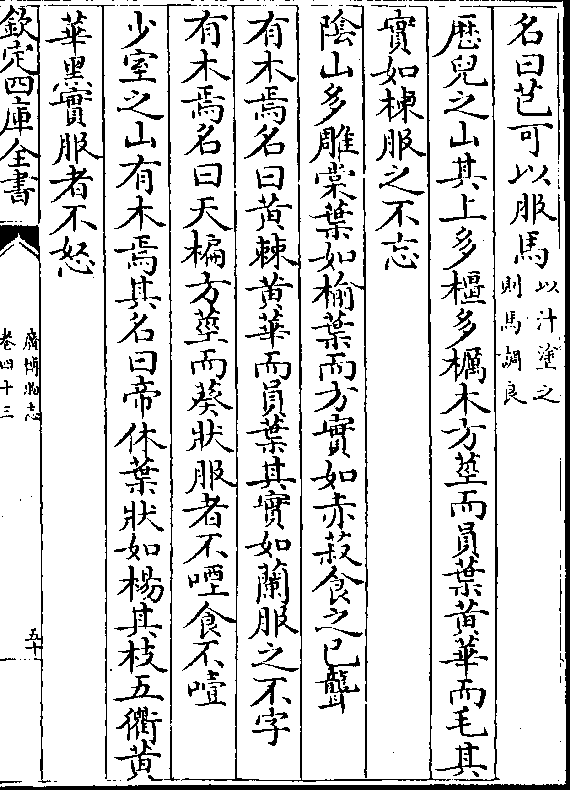 名曰芑可以服馬以汁塗之
則馬調良
歴兒之山其上多橿多櫔木方莖而員葉黃華而毛其
實如楝服之不忘
陰山多雕棠葉如榆葉而方實如赤菽食之已聾
有木焉名曰黃棘黃華而員葉其實如蘭服之不字
有木焉名曰天楄方莖而葵狀服者不㖶食不噎
少室之山有木焉其名曰帝休葉狀如楊其枝五衢黃
華黑實服者不怒
欽定四庫全書
廣博物志
卷四十三
五十